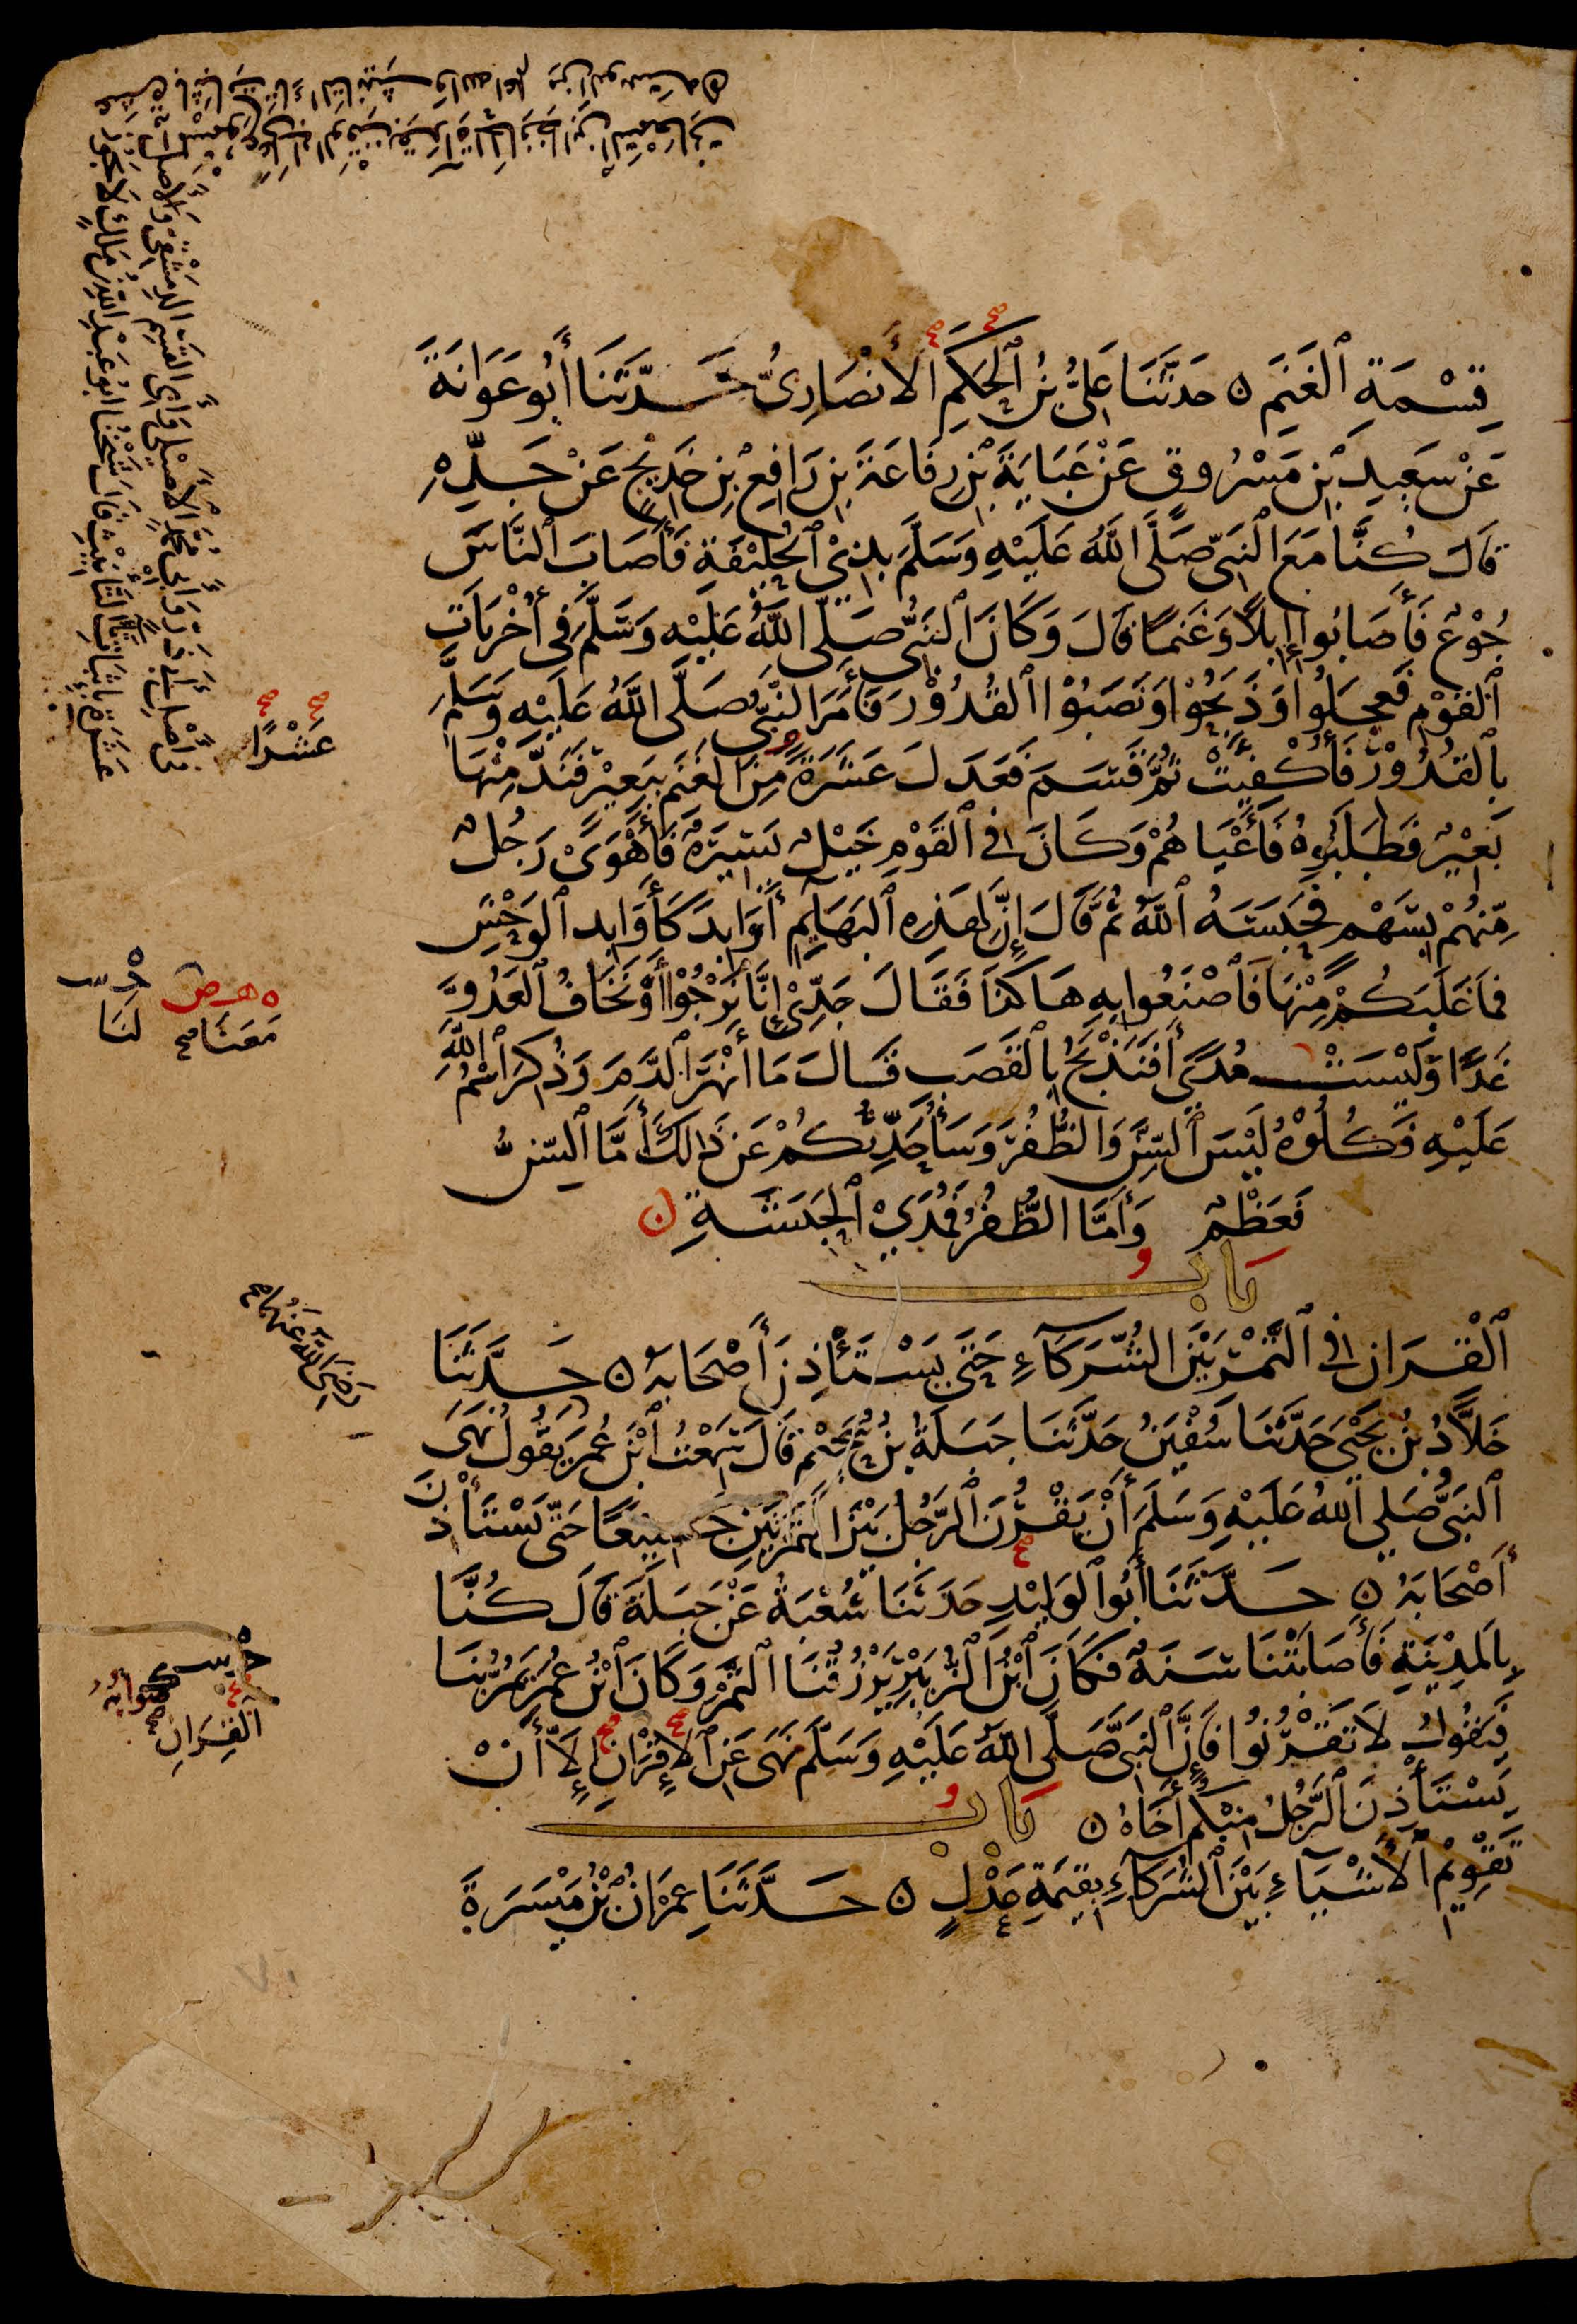 قِسْمَةِ ٱلْغَنَمِ ه حَدَّثَنَا عَلِيُّ بْنُ ٱلْحَكَمِ ٱلْأَنْصَارِيُّ حَدَّثَنَا أَبُو عَوَانَةَ
عَنْ سَعِيدِ بْنِ مَسْرُوقٍ عَنْ عَبَايَةَ بْنِ رِفَاعَةَ بْنِ رَافِعِ بْنِ خَدِيجٍ عَنْ جَدِّهِ
قَالَ كُنَّا مَعَ ٱلنَّبِيِّ صَلَّى اللَّهُ عَلَيْهِ وَسَلَّمَ بِذِي ٱلْحُلَيْفَةِ فَأَصَابَ ٱلنَّاسَ
جُوْعٌ فَأَصَابُوا إِبِلًا وَغَنَمًا قَالَ وَكَانَ ٱلنَّبِيُّ صَلَّى اللَّهُ عَلَيْهِ وَسَلَّمَ فِي أُخْرَيَاتِ
ٱلْقَوْمِ فَعَجِلُوا وَذَبَحُوْا وَنَصَبُوْا ٱلْقُدُوْرَ فَأَمَرَ النَّبِيُّ صَلَّى اللَّهُ عَلَيْهِ وَسَلَّمَ
بِٱلْقُدُوْرِ فَأُكْفِيَتْ ثُمَّ قَسَمَ فَعَدَلَ عَشَرَةً مِنَ الْغَنَمِ بِبَعِيْرٍ فَنَدَّ مِنْهَا
بَعِيْرٌ فَطَلَبُوهُ فَأَعْيَاهُمْ وَكَانَ فِي ٱلْقَوْمِ خَيْلٌ يَسِيْرَةٌ فَأَهْوَى رَجُلٌ
مِنْهُمْ بِسَهْمٍ فَحَبَسَهُ ٱللَّهُ ثُمَّ قَالَ إِنَّ لِهَذِهِ ٱلْبَهَايِمِ أَوَابِدَ كَأَوَابِدِ ٱلْوَحْشِ
فَمَا غَلَبَكُمْ مِنْهَا فَٱصْنَعُوا بِهِ هَاكَذَا فَقَالَ جَدِّيْ إِنَّا نَرْجُوْا أَوْ نَخَافُ ٱلْعَدُوَّ
غَدًا وَلَيْسَتْ مُدًى أَفَنَذْبَحُ بِٱلْقَصَبِ فَقَالَ مَا أَنْهَرَ ٱلدَّمَ وَذُكِرَ اسْمُ اللَّهِ
عَلَيْهِ فَكُلُوْهُ لَيْسَ ٱلسِّنَّ وَالظُّفُرَ وَسَأُحَدِّثُكُمْ عَنْ ذَالِكَ أَمَّا ٱلسِّنُّ
فَعَظْمٌ وَأَمَّا الظُّفُرُ فَمُدَى ٱلْحَبَشَةِ ن
بَابُ
ٱلْقِرَانِ فِي ٱلتَّمْرِ بَيْنَ الشُّرَكَآءِ حَتَّى يَسْتَأْذِنَ أَصْحَابَهُ ه حَدَّثَنَا
خَلَّادُ بْنُ يَحْيَى حَدَّثَنَا سُفْيَنُ حَدَّثَنَا جَبَلَةُ بْنُ سُحَيْمٍ قَالَ سَمِعْتُ ٱبْنَ عُمَرَ يَقُولُ نَهَى
ٱلنَّبِيُّ صَلَّى اللهُ عَلَيْهِ وَسَلَّمَ أَنْ يَقْرُنَ ٱلرَّجُلُ بَيْنَ التَّمْرَتَيْنِ جَمِيعًا حَتَّى يَسْتَأْذِنَ
أَصْحَابَهُ ه حَدَّثَنَا أَبُو ٱلْوَلِيْدِ حَدَثَنَا شُعْبَةُ عَنْ جَبَلَةَ قَالَ كُنَّا
بِالْمَدِيْنَةِ فَأَصَابَتْنَا سَنَةٌ فَكَانَ ٱبْنُ ٱلزُّبَيْرِ يَرْزُقُنَا ٱلتَّمْرَ وَكَانَ ٱبْنُ عُمَرَ يَمُرُّ بِنَا
فَيَقُولُ لَا تَقْرُنُوا فَإِنَّ ٱلنَّبِيَّ صَلَّى اللَّهُ عَلَيْهِ وَسَلَّمَ نَهَى عَنِ ٱلْإِقْرَانِ إِلَّا أَنْ
يَسْتَأْذِنَ ٱلرَّجُلُ مِنْكُمْ أَخَاهُ ه بَابُ
تَقْوِيْمِ ٱلْأَشْيَاءِ بَيْنَ ٱلشُّرَكَآءِ بِقِيمَةِ عَدْلٍ ه حَدَّثَنَا عِمْرَانُ بْنُ مَيْسَرَةَ
عَشْرًا
مَعَنَا
لَنَا
رَضِيَ اللَّهُ عَنْهُمَا
القِرَانِ